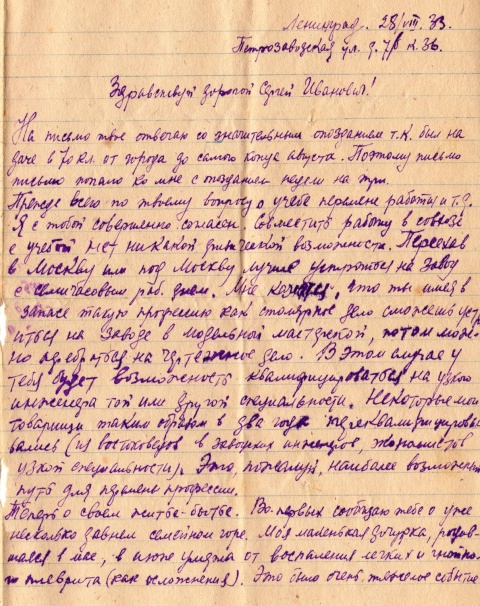 Ленинград. 28/VIII. 33.
Петрозаводская ул. д. 7/ к. 36.
Здравствуй дорогой Сергей Иванович!
На письмо твое отвечаю со значительным опозданием т.к. был на
даче в 70 кл. от города до самого конца августа. Поэтому письмо
письмо попало ко мне с опозданием недели на три.
Прежде всего по твоему вопросу о учебе перемене работы и т.д.
Я с тобой совершенно согласен. Совместить работу в совхозе
с учебой нет никакой физической возможности. Переехав
в Москву или под Москву лучше устроиться на завод
с семичасовым раб. днем. Мне кажется, что ты имея в
запасе такую професию как столярное дело сможешь устро
иться на заводе в модельной мастерской, потом мож-
но перебраться на чертежное дело. В этом случае у
тебя будет возможность квалифицироваться на узкого
инженера той или другой специальности. Некоторые мои
товарищи таким образом в два года переквалифицирова
вались (из востоковедов в заводских инженеров, экономистов
узкой специальности). Это, пожалуй, наиболее возможный
путь для перемены профессии.
Теперь о своем житье-бытье. Во первых сообщаю тебе о уже
несколько давнем семейном горе. Моя маленькая дочурка, родив-
шаяся в мае, в июле умерла от воспаления легких и гнойно-
го плеврита (как осложнения). Это было очень тяжелое событие